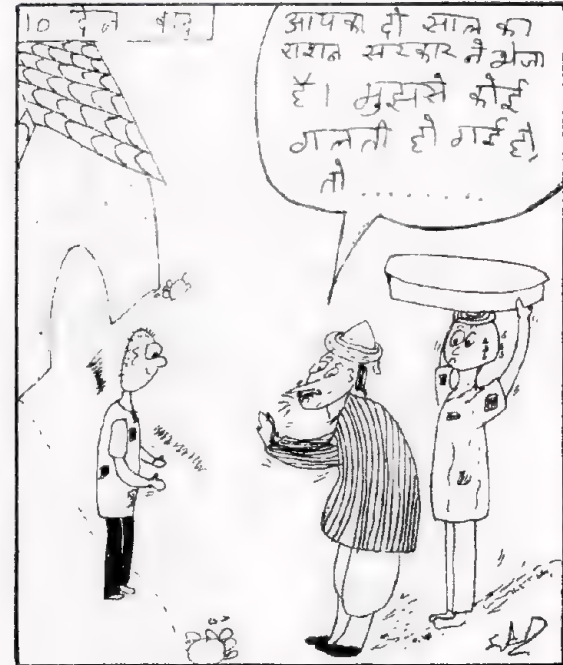 10 देन बाद
आपका दो साल का
राशन सरकार ने भेजा
है। मुझसे कोई
गलती हो गई हो,
तो ........